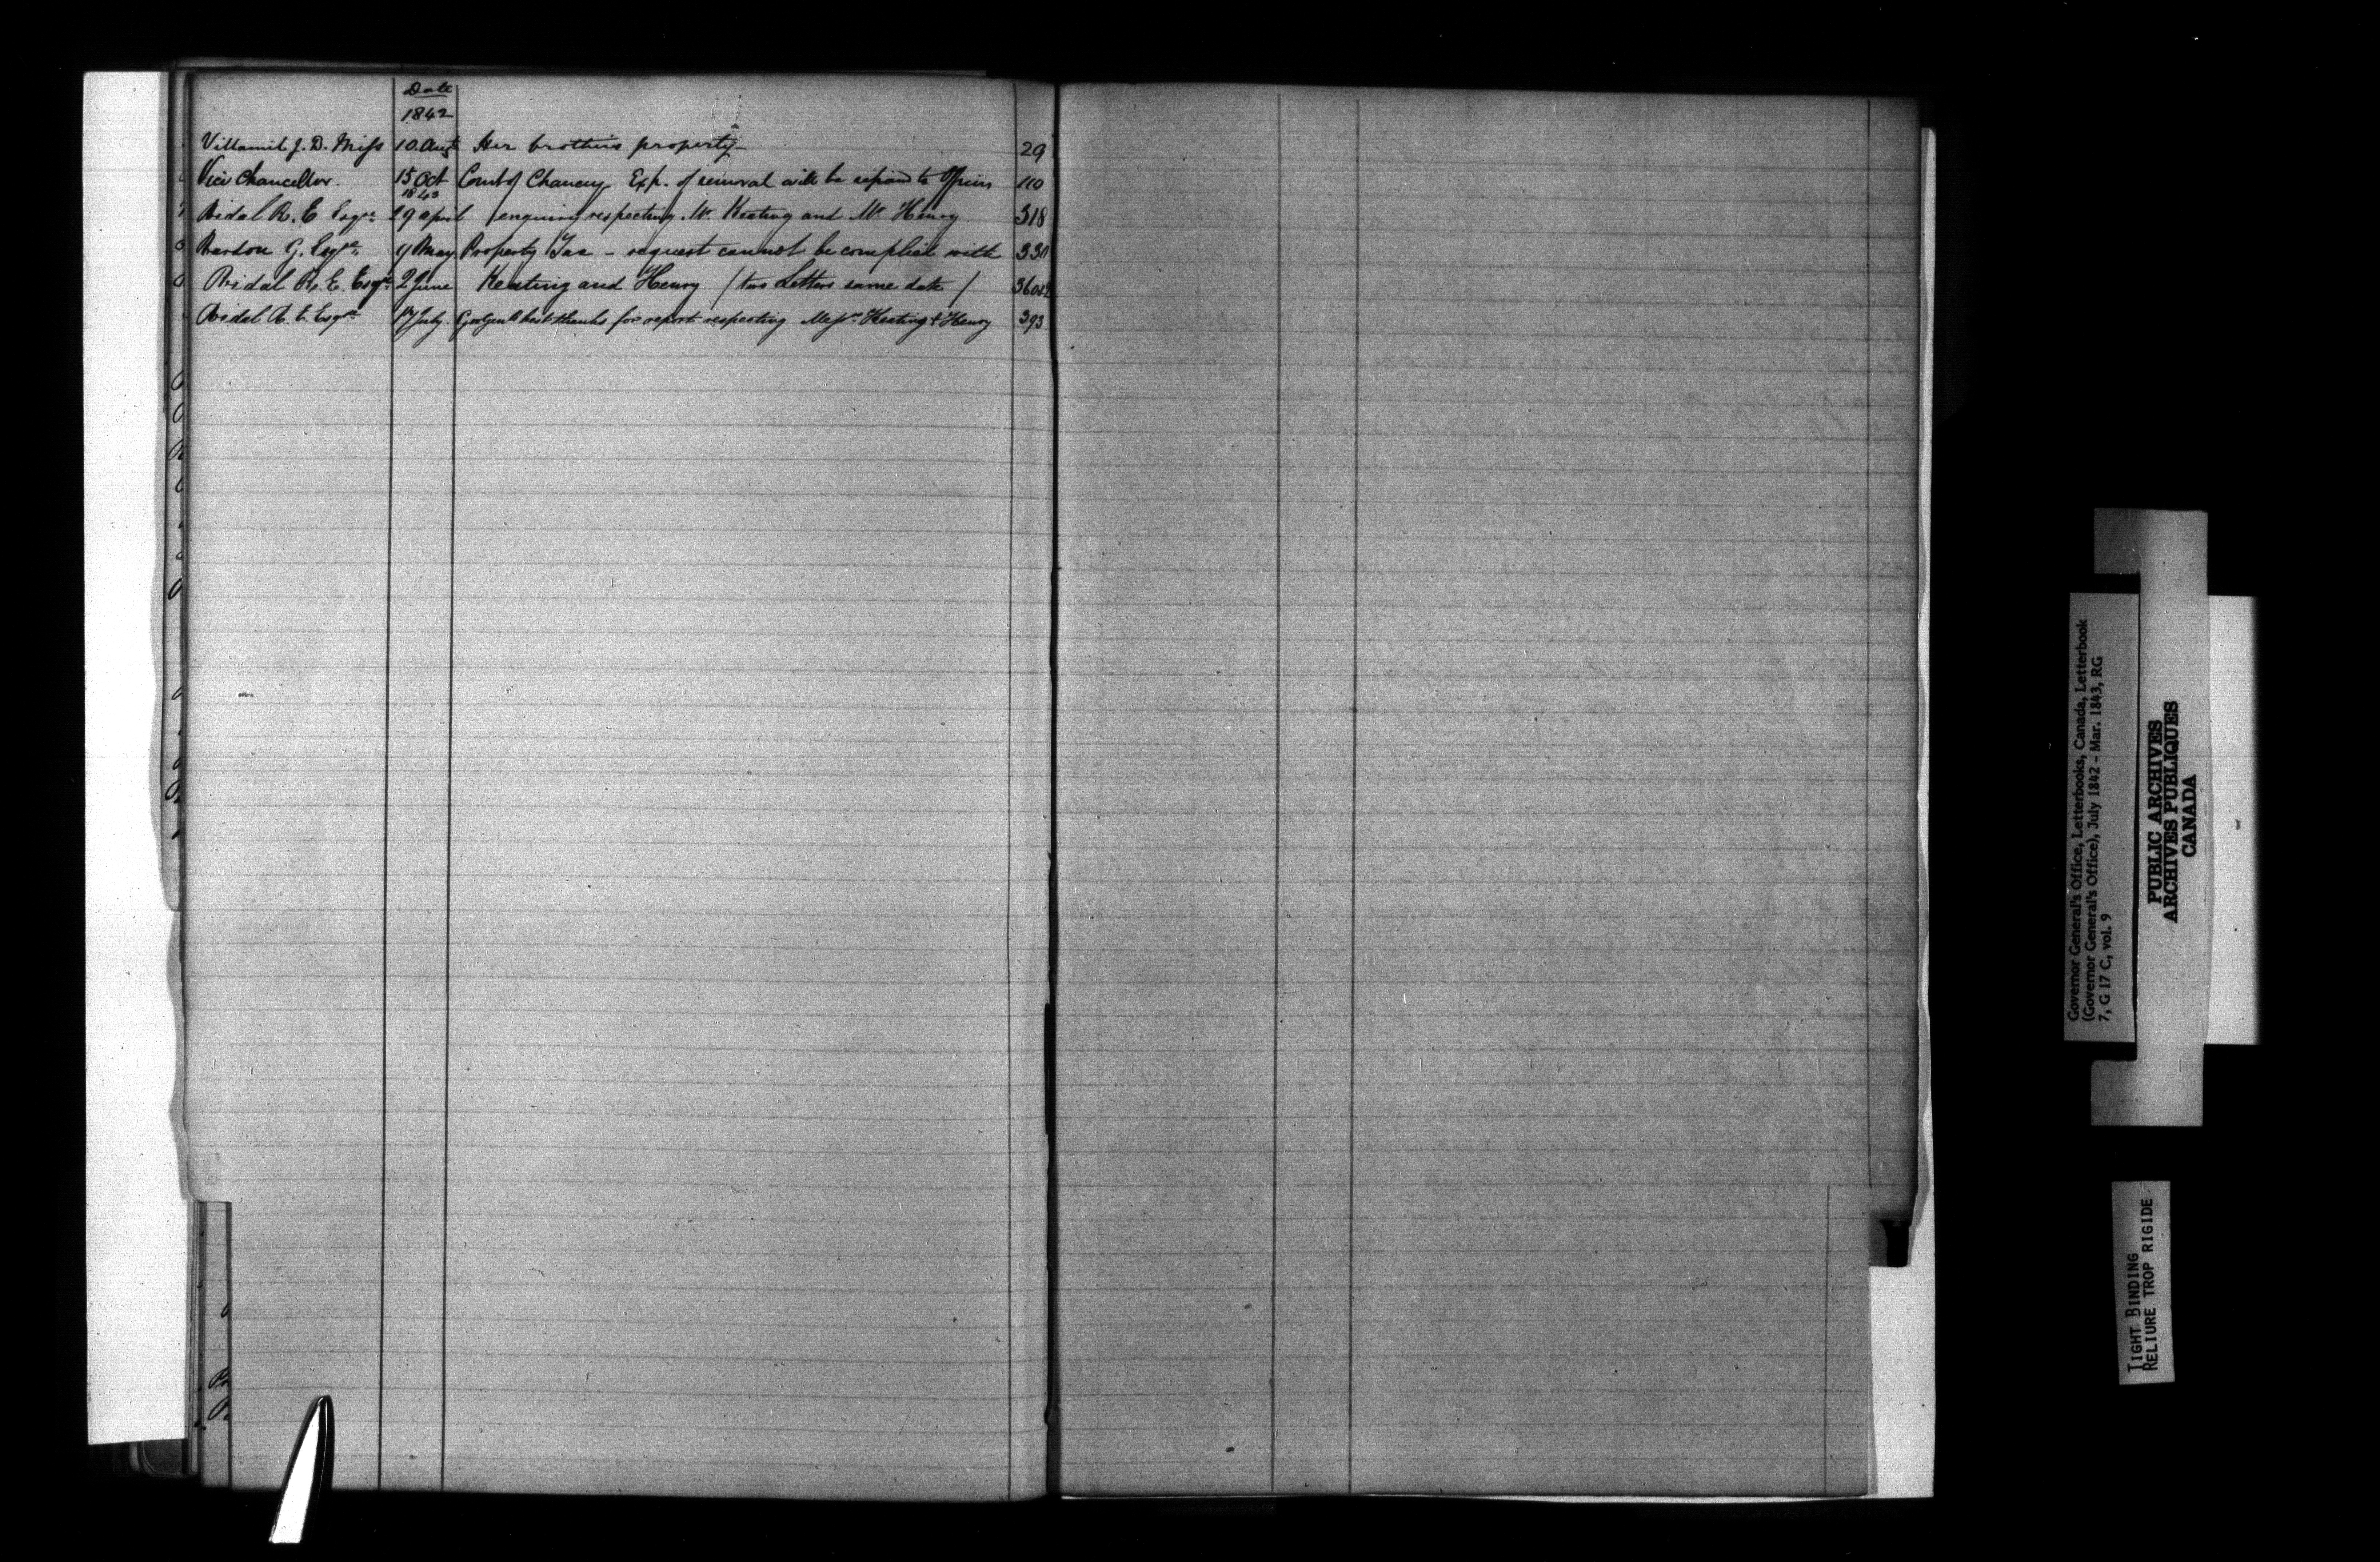 Date
1842
Villamil J. D. Miss 10. Augt Her brothers property 29
Vice Chancellor. 15 Oct Court of Chancery Exp. of removal will be repaid to Officers 110
1843
Vidal R. E Esqre 29 april enquiry respecting Mr. Keating and Mr Henry 318
Vardon G. Esqre 9 May Property Tax - request cannot be complied with 330
Vidal R. E. Esqre 2 June Keating and Henry / two Letters same date /
Vidal R. E. Esqre 17 July. best thanks for report respecting Messrs Keating & Henry 393
Governor General's Office, Letterbooks, Canada, Letterbook
(Governor General's Office), July 1842 - Mar. 1843, RG
7, G 17 C, vol. 9
PUBLIC ARCHIVES
ARCHIVES PUBLIQUES
CANADA
TIGHT BINDING
RELIURE TROP RIGIDE